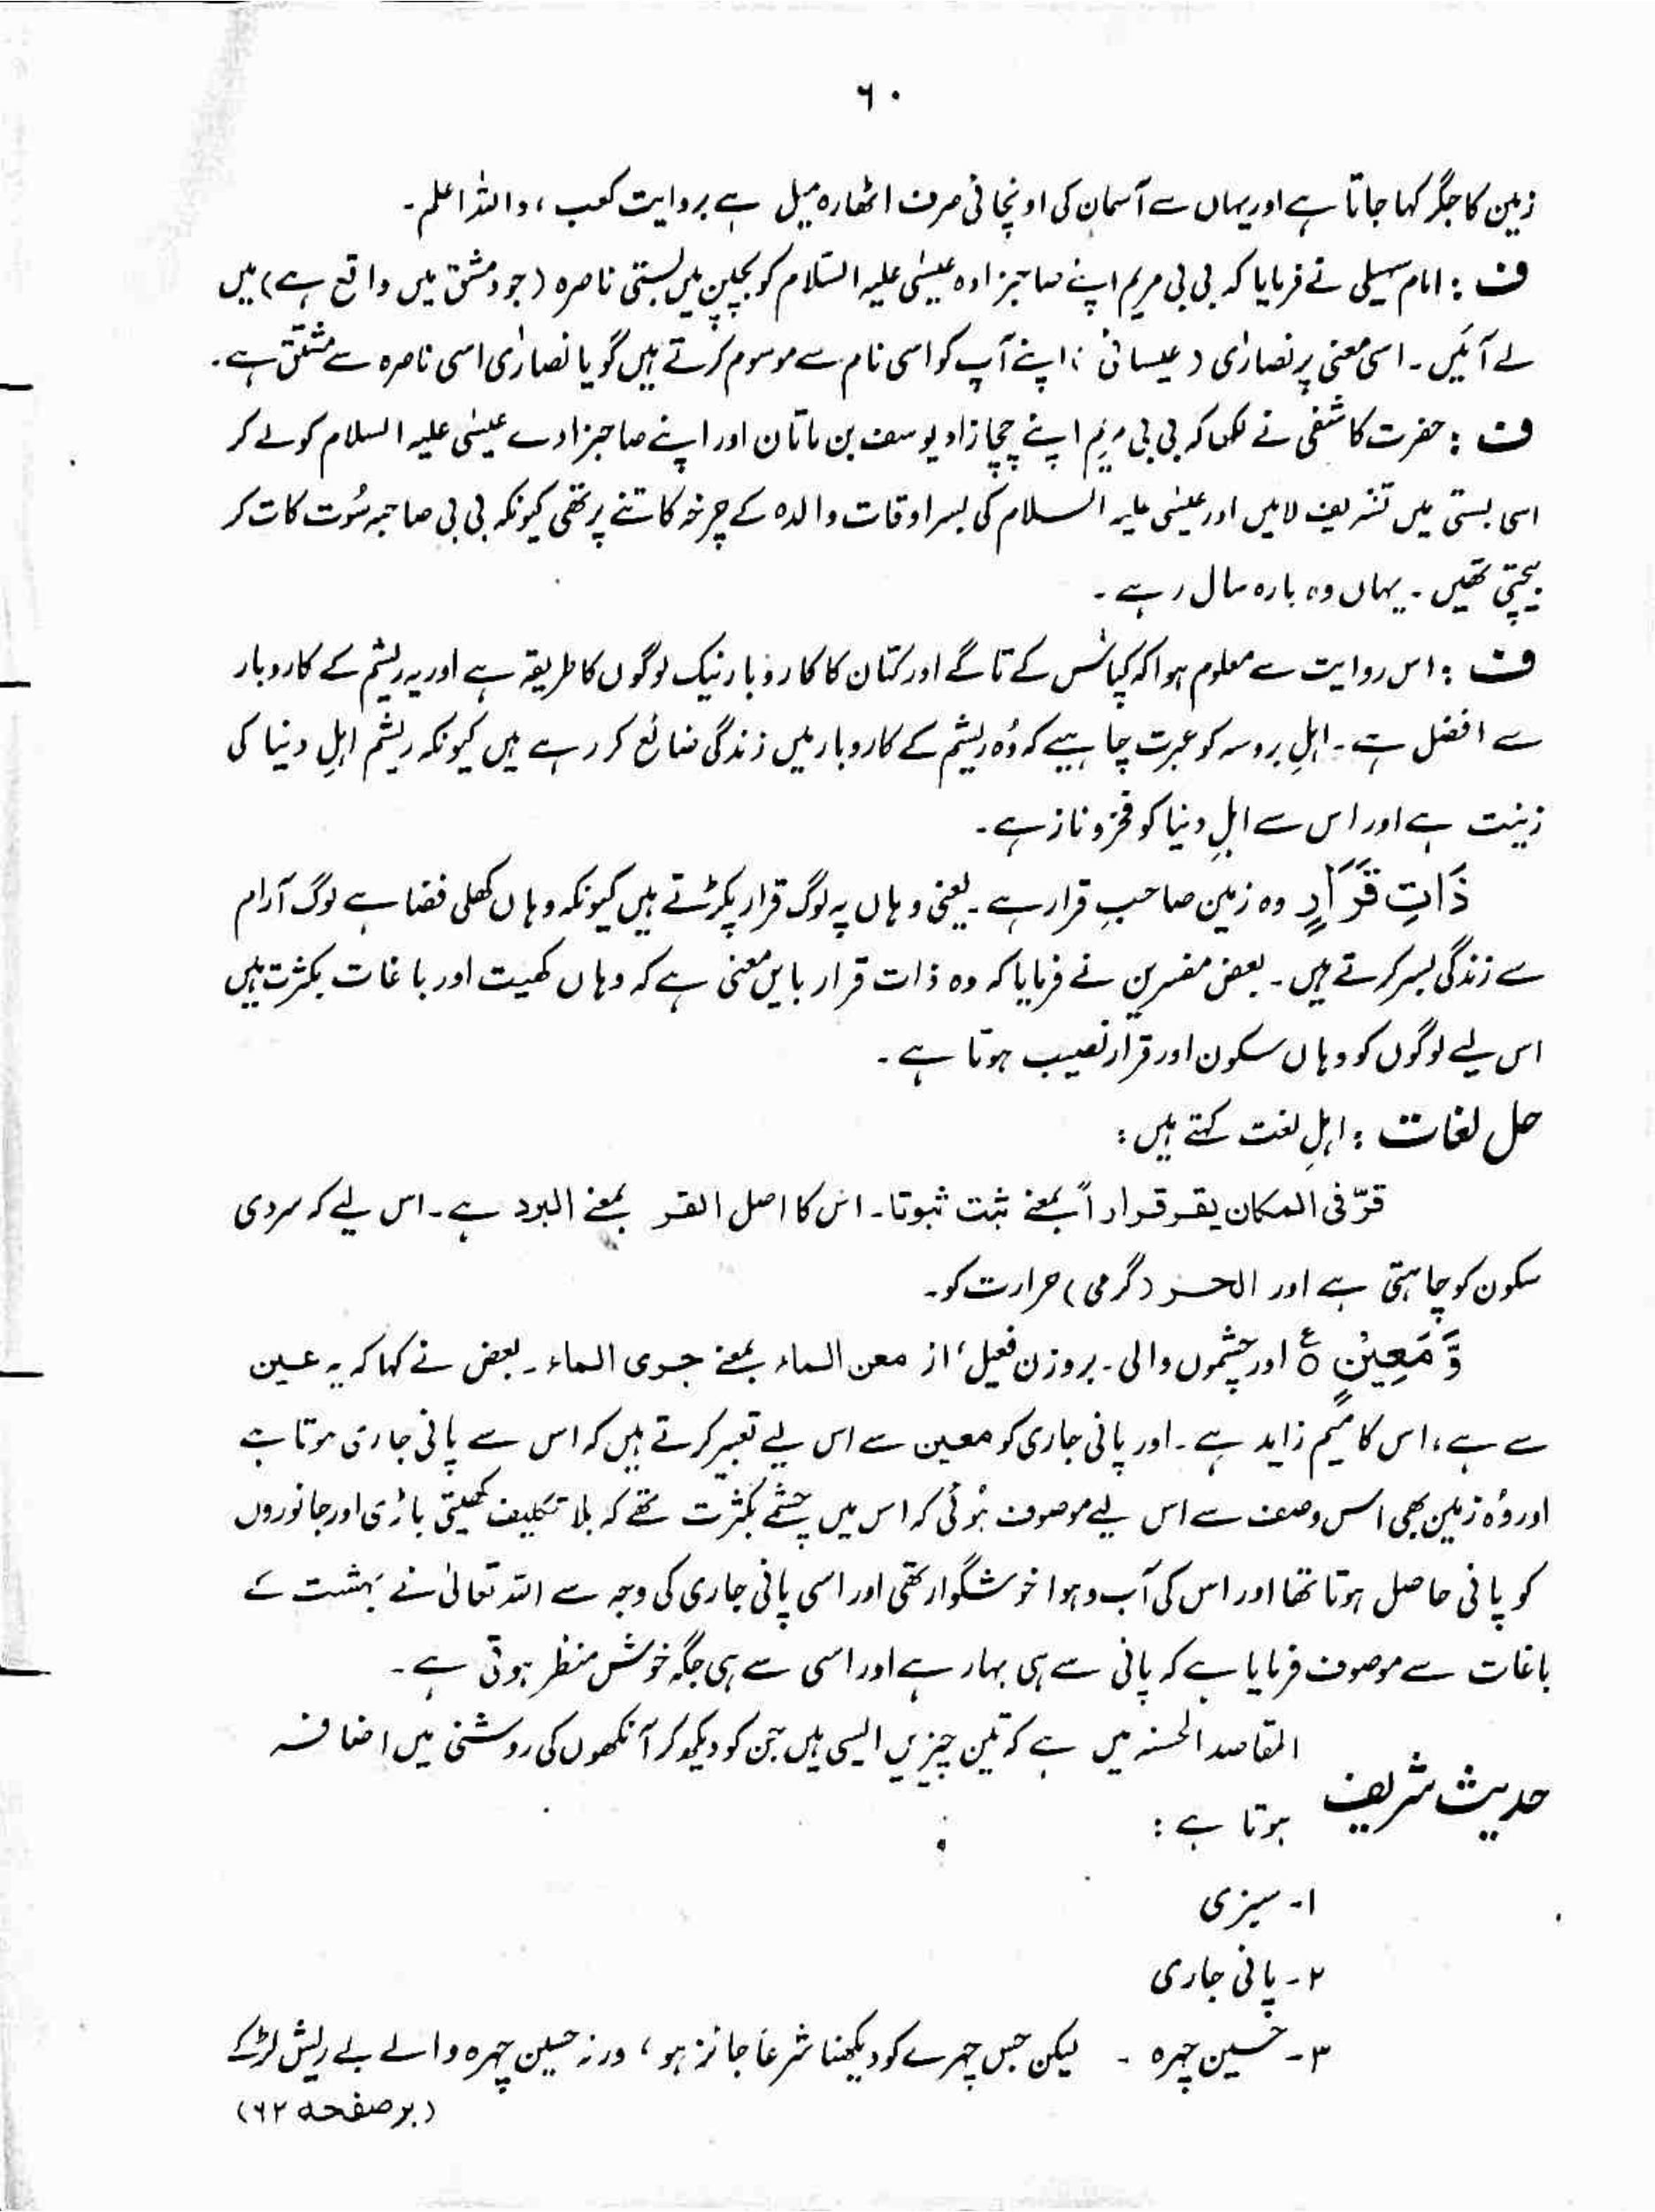 ۶۰
زمین کا جگر کہا جاتا ہے اور یہاں سے آسمان کی اونچائی صرف اٹھارہ میل ہے بروایت کعب، واللہ اعلم۔
ف : امام سہیلی نے فرمایا کہ بی بی مریم اپنے صاحبزادہ عیسٰی علیہ السّلام کو بچپن میں بستی ناصرہ (جو دمشق میں واقع ہے) میں
لے آئیں۔ اسی معنی پر نصارٰی (عیسائی) اپنے آپ کو اسی نام سے موسوم کرتے ہیں گویا نصارٰی اسی ناصرہ سے مشتق ہے۔
ف : حضرت کاشفی نے لکھا کہ بی بی مریم اپنے چچا زاد یوسف بن ماتان اور اپنے صاحبزادے عیسٰی علیہ السلام کو لے کر
اسی بستی میں تشریف لائیں اور عیسٰی علیہ السلام کی بسر اوقات والدہ کے چرخہ کاتنے پر تھی کیونکہ بی بی صاحبہ سُوت کات کر
بیچتی تھیں۔ یہاں وہ بارہ سال رہے۔
ف : اس روایت سے معلوم ہوا کہ کپاس کے تاگے اور کتان کا کاروبار نیک لوگوں کا طریقہ ہے اور یہ ریشم کے کاروبار
سے افضل ہے۔ اہلِ بروسہ کو عبرت چاہیے کہ وُہ ریشم کے کاروبار میں زندگی ضائع کر رہے ہیں کیونکہ ریشم اہلِ دنیا کی
زینت ہے اور اس سے اہلِ دنیا کو فخر و ناز ہے۔
ذَاتِ قَرَارٍ وہ زمین صاحبِ قرار ہے۔ یعنی وہاں پہ لوگ قرار پکڑتے ہیں کیونکہ وہاں کھلی فضا ہے لوگ آرام
سے زندگی بسر کرتے ہیں۔ بعض مفسرین نے فرمایا کہ وہ ذات قرار بایں معنی ہے کہ وہاں کھیت اور باغات بکثرت ہیں
اس لیے لوگوں کو وہاں سکون اور قرار نصیب ہوتا ہے۔
حل لغات : اہلِ لغت کہتے ہیں :
قرّ فی المکان یقر قراراً بمعنے ثبت ثبوتا۔ اس کا اصل القر بمعنے البرد ہے۔ اس لیے کہ سردی
سکون کو چاہتی ہے اور الحر (گرمی) حرارت کو۔
وَّ مَعِیْنٍ ۝ع اور چشموں والی۔ بروزن فعیل، از معن الماء بمعنے جری الماء۔ بعض نے کہا کہ یہ عین
سے ہے، اس کا میم زاید ہے۔ اور پانی جاری کو معین سے اس لیے تعبیر کرتے ہیں کہ اس سے پانی جاری ہوتا ہے
اور وُہ زمین بھی اس وصف سے اس لیے موصوف ہُوئی کہ اس میں چشمے بکثرت تھے کہ بلا تکلیف کھیتی باڑی اور جانوروں
کو پانی حاصل ہوتا تھا اور اس کی آب و ہوا خوشگوار تھی اور اسی پانی جاری کی وجہ سے اللہ تعالٰی نے بہشت کے
باغات سے موصوف فرمایا ہے کہ پانی سے ہی بہار ہے اور اسی سے ہی جگہ خوش منظر ہوتی ہے۔
حدیث شریف المقاصد الحسنہ میں ہے کہ تین چیزیں ایسی ہیں جن کو دیکھ کر آنکھوں کی روشنی میں اضافہ
ہوتا ہے :
۱- سبزی
۲- پانی جاری
۳- حسین چہرہ ۔ لیکن جس چہرے کو دیکھنا شرعاً جائز ہو، ورنہ حسین چہرہ والے بے ریش لڑکے
(بر صفحہ ۶۲)